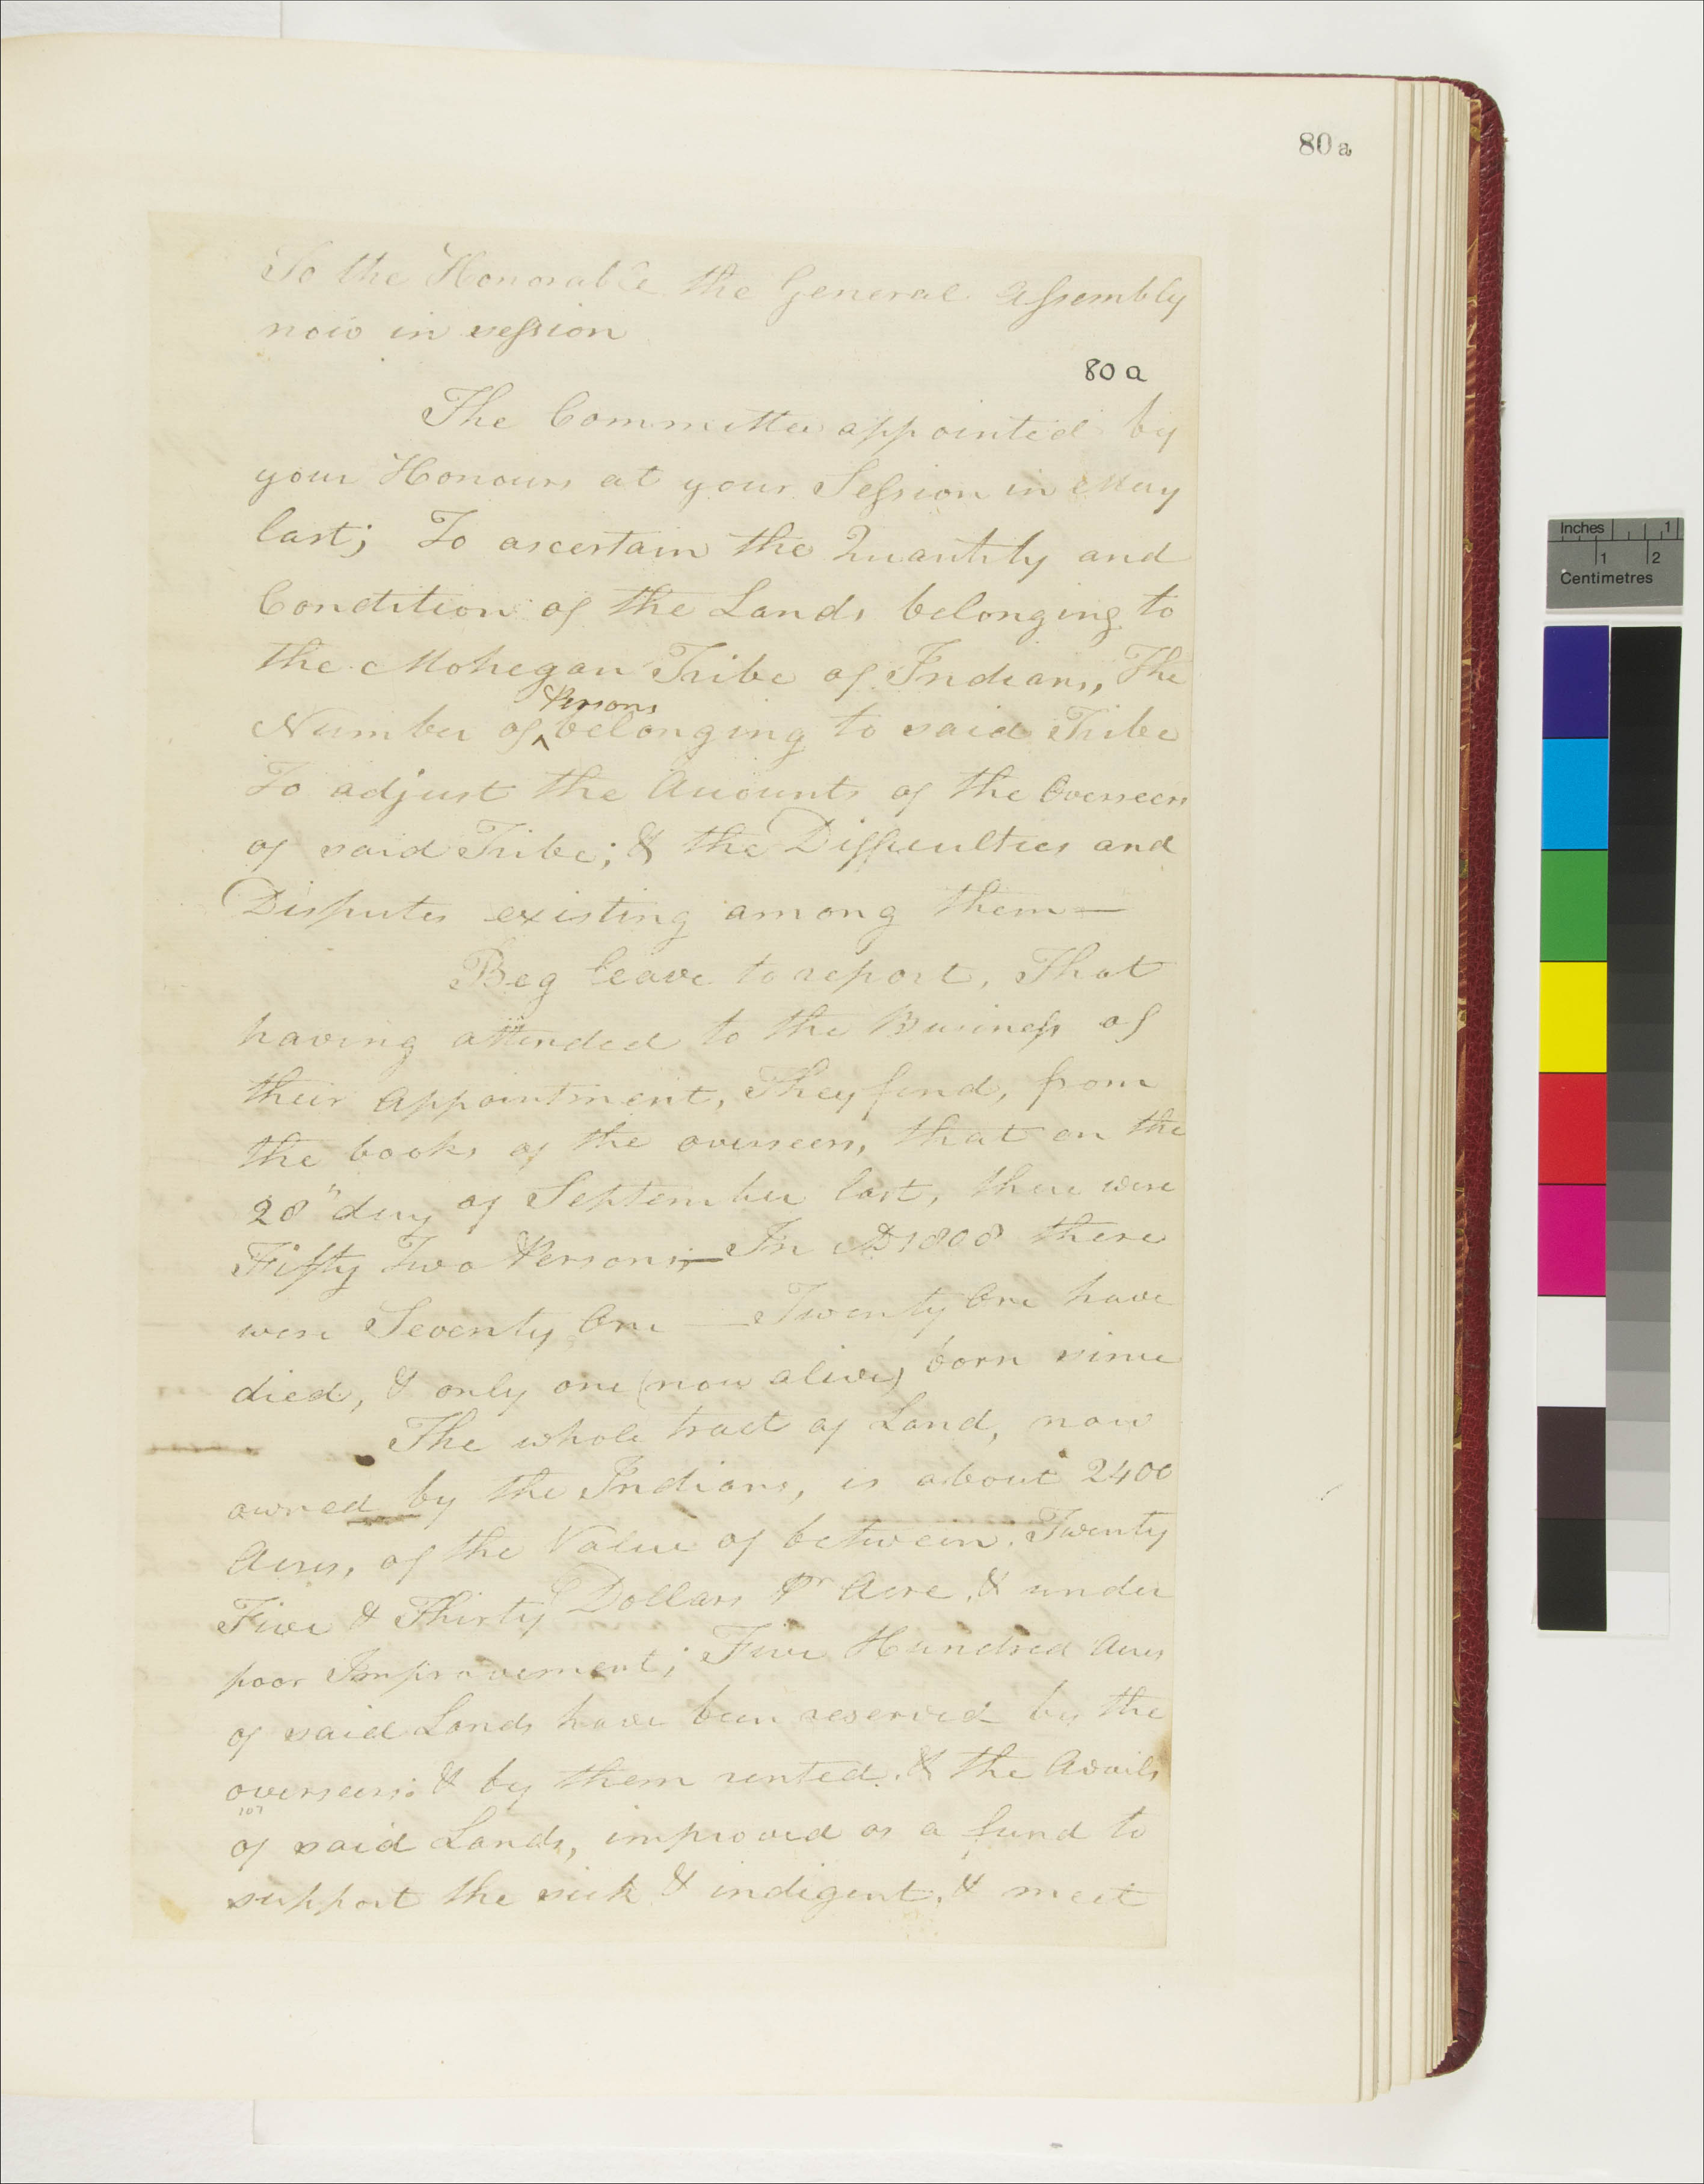 80 a
To the Honorable the General Assembly
now in session
80 a
The Committee appointed by
your Honours at your Session in May
last; To ascertain the Quantity and
Condition of the Lands belonging to
the Mohegan Tribe of Indians, The
Persons
Number of ^ belonging to said Tribe
To adjust the Accounts of the Overseers
of said Tribe; & the Difficulties and
Disputes existing among them —
Beg leave to report, That
having attended to the Business of
their Appointment, They find, from
the books of the overseers, that on the
28" day of September last, there were
Fifty Two Persons; — In AD 1808 there
were Seventy One — Twenty One have
died, & only one (now alive) born since
The whole tract of Land, now
owned by the Indians, is about 2400
Acres, of the Value of between Twenty
Five & Thirty Dollars Pr Acre, & under
poor Improvement; Five Hundred Acres
of said Lands have been reserved by the
overseers: & by them rented, & the Avails
107
of said Lands, improved as a fund to
support the sick & indigent, & meet
Inches 1
1 2
Centimetres